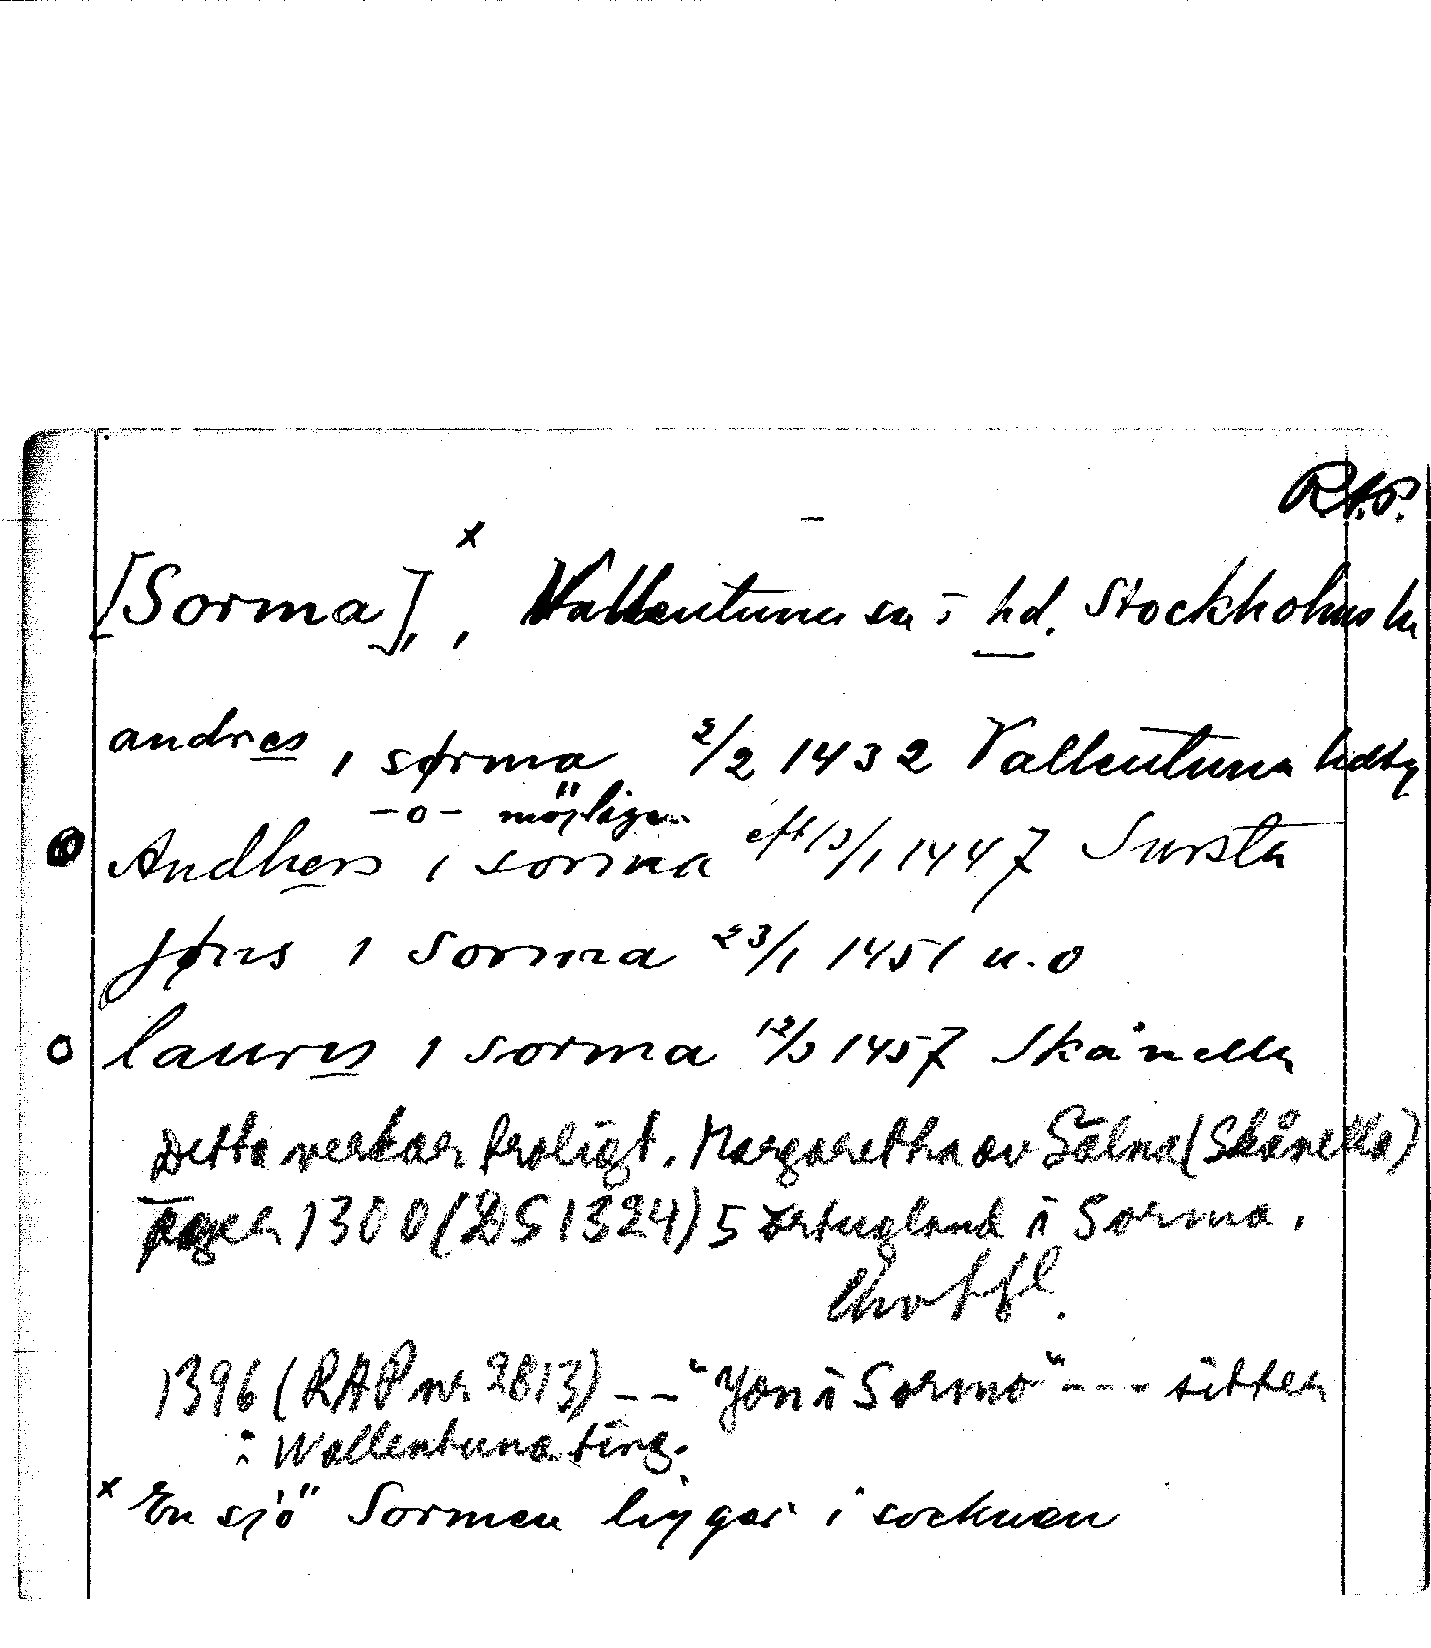 R.A.P.
[Sorma],ˣ, Vallentuna sn o hd. Stockholms län
andres i sørma 2/2 1432 Vallentuna hdtg
-o- möjligen
Andhers i sorma eft 13/1 1447 Sursta
Jøns i Sorma 23/1 1451 u.o
laurens i sorma 12/3 1457 Skånella
Detta verkar troligt. Margaretha av Sälna (Skånella)
äger 1300 (DS 1324) 5 örtugland i Sorma.
1396 (RAP nr 2813) -- "Jon i Sormo" --- sitter
i Wallentuna ting.
x En sjö Sormen ligger i socknen